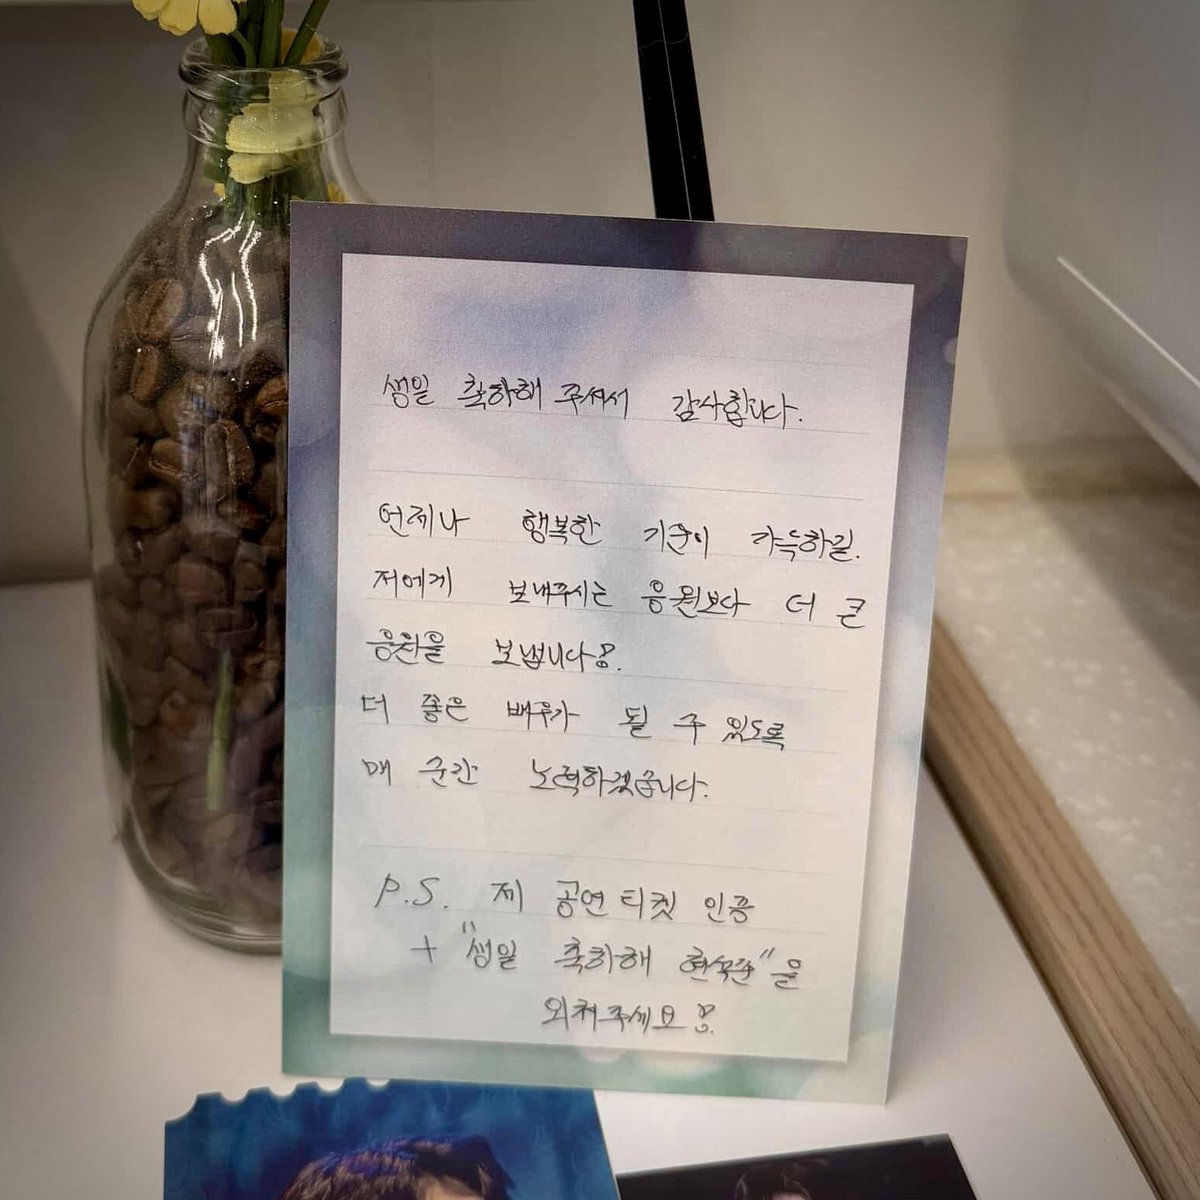 생일 축하해 주셔서 감사합니다.
언제나 행복한 기운이 가득하길.
저에게 보내주시는 응원보다 더 큰
응원을 보냅니다!.
더 좋은 배우가 될 수 있도록
매 순간 노력하겠습니다.
P.S. 제 공연 티켓 인증
+ "생일 축하해 현석준"을
외쳐주세요!